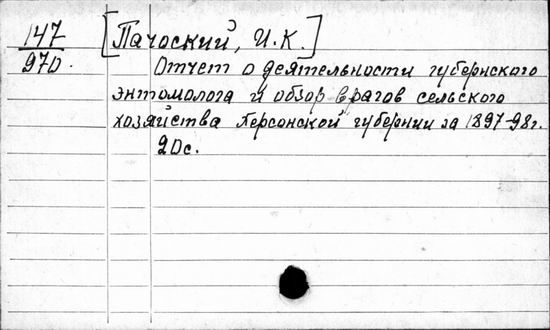 147 [Пачоский, И.К.]
970. Отчет о деятельности губернского
энтомолога и обзор врагов сельского
хозяйства Херсонской губернии за 1897-98г.
20с.